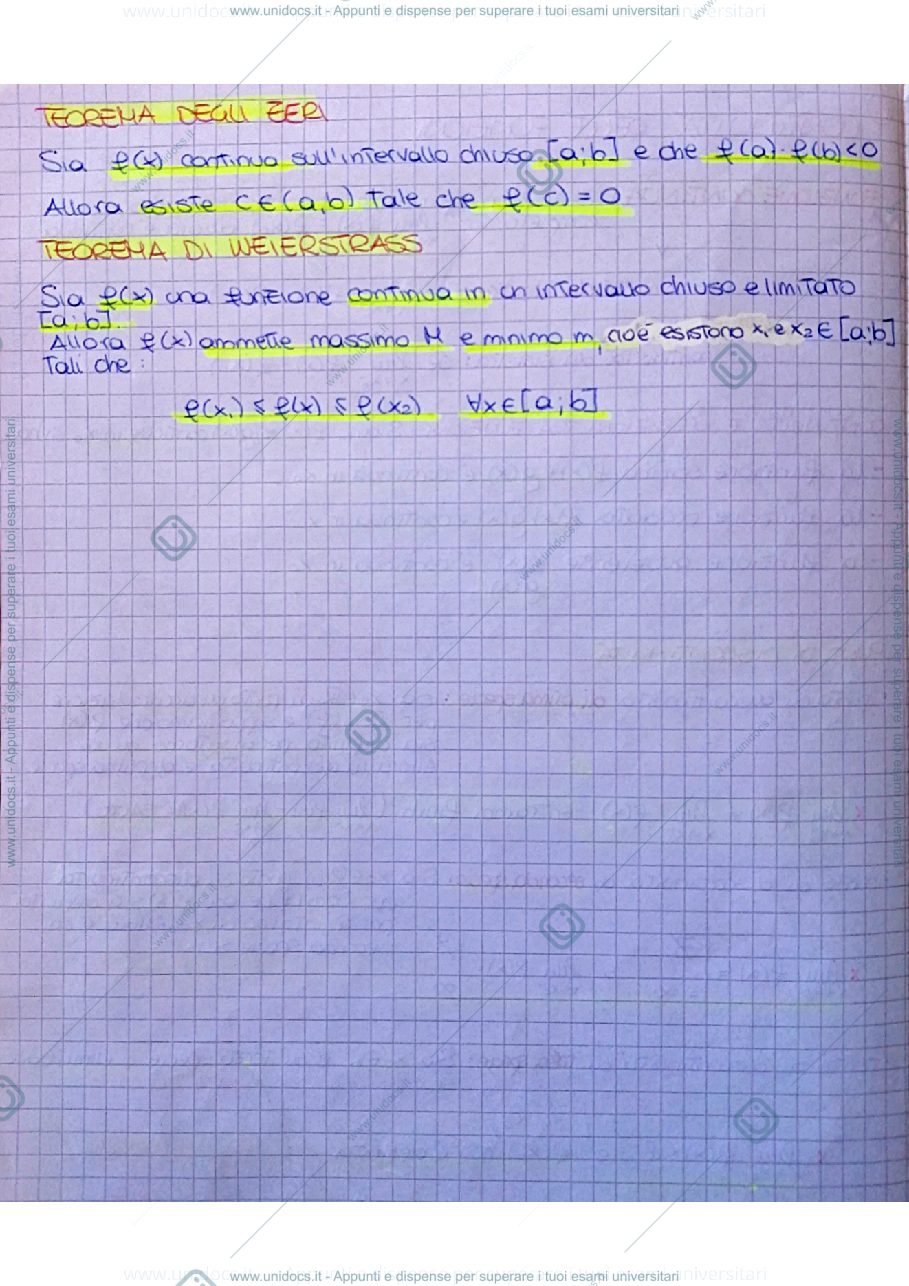 www.unidocs.it - Appunti e dispense per superare i tuoi esami universitari
TEOREMA DEGLI ZERI
Sia f(x) continua sull'intervallo chiuso [a;b] e che f(a)·f(b)<0
Allora esiste c∈(a,b) tale che f(c)=0
TEOREMA DI WEIERSTRASS
Sia f(x) una funzione continua in un intervallo chiuso e limitato
[a;b].
Allora f(x) ammette massimo M e minimo m, cioé esistono x₁ e x₂∈[a;b]
Tali che :
f(x₁) ≤ f(x) ≤ f(x₂) ∀x∈[a;b]
www.unidocs.it - Appunti e dispense per superare i tuoi esami universitari
www.unidocs.it - Appunti e dispense per superare i tuoi esami universitari
www.unidocs.it - Appunti e dispense per superare i tuoi esami universitari